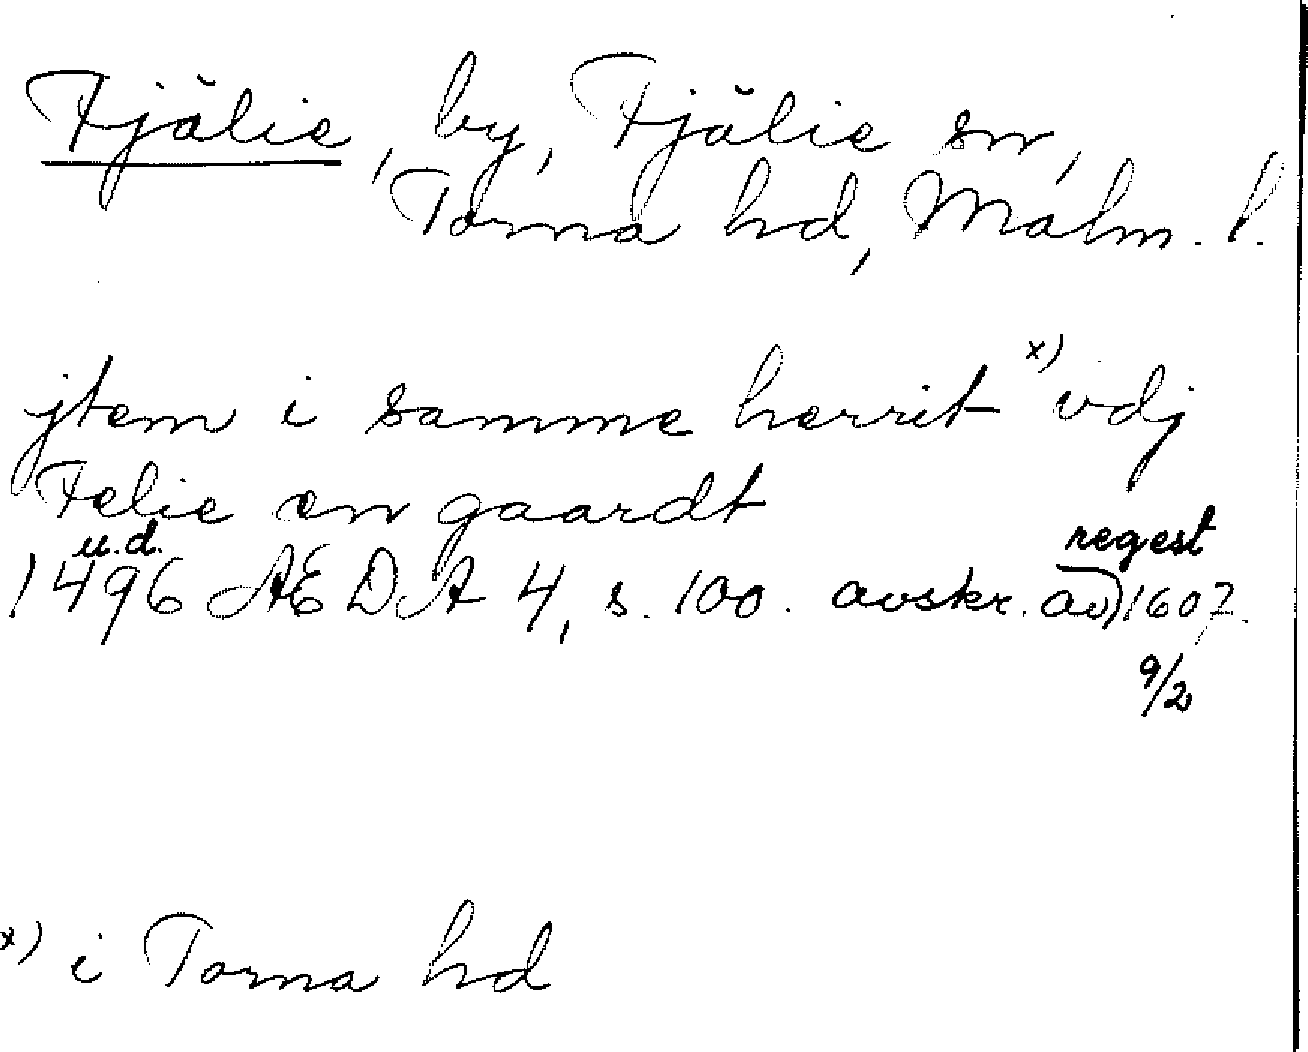 Fjälie, by, Fjälie sn,
Torna hd, Malm. l.
jtem i samme herrit x) vdj
Felie en gaardt
u.d. regest
1496 AEDA 4, s. 100. avskr. av) 1607.
9/2
x) i Torna hd